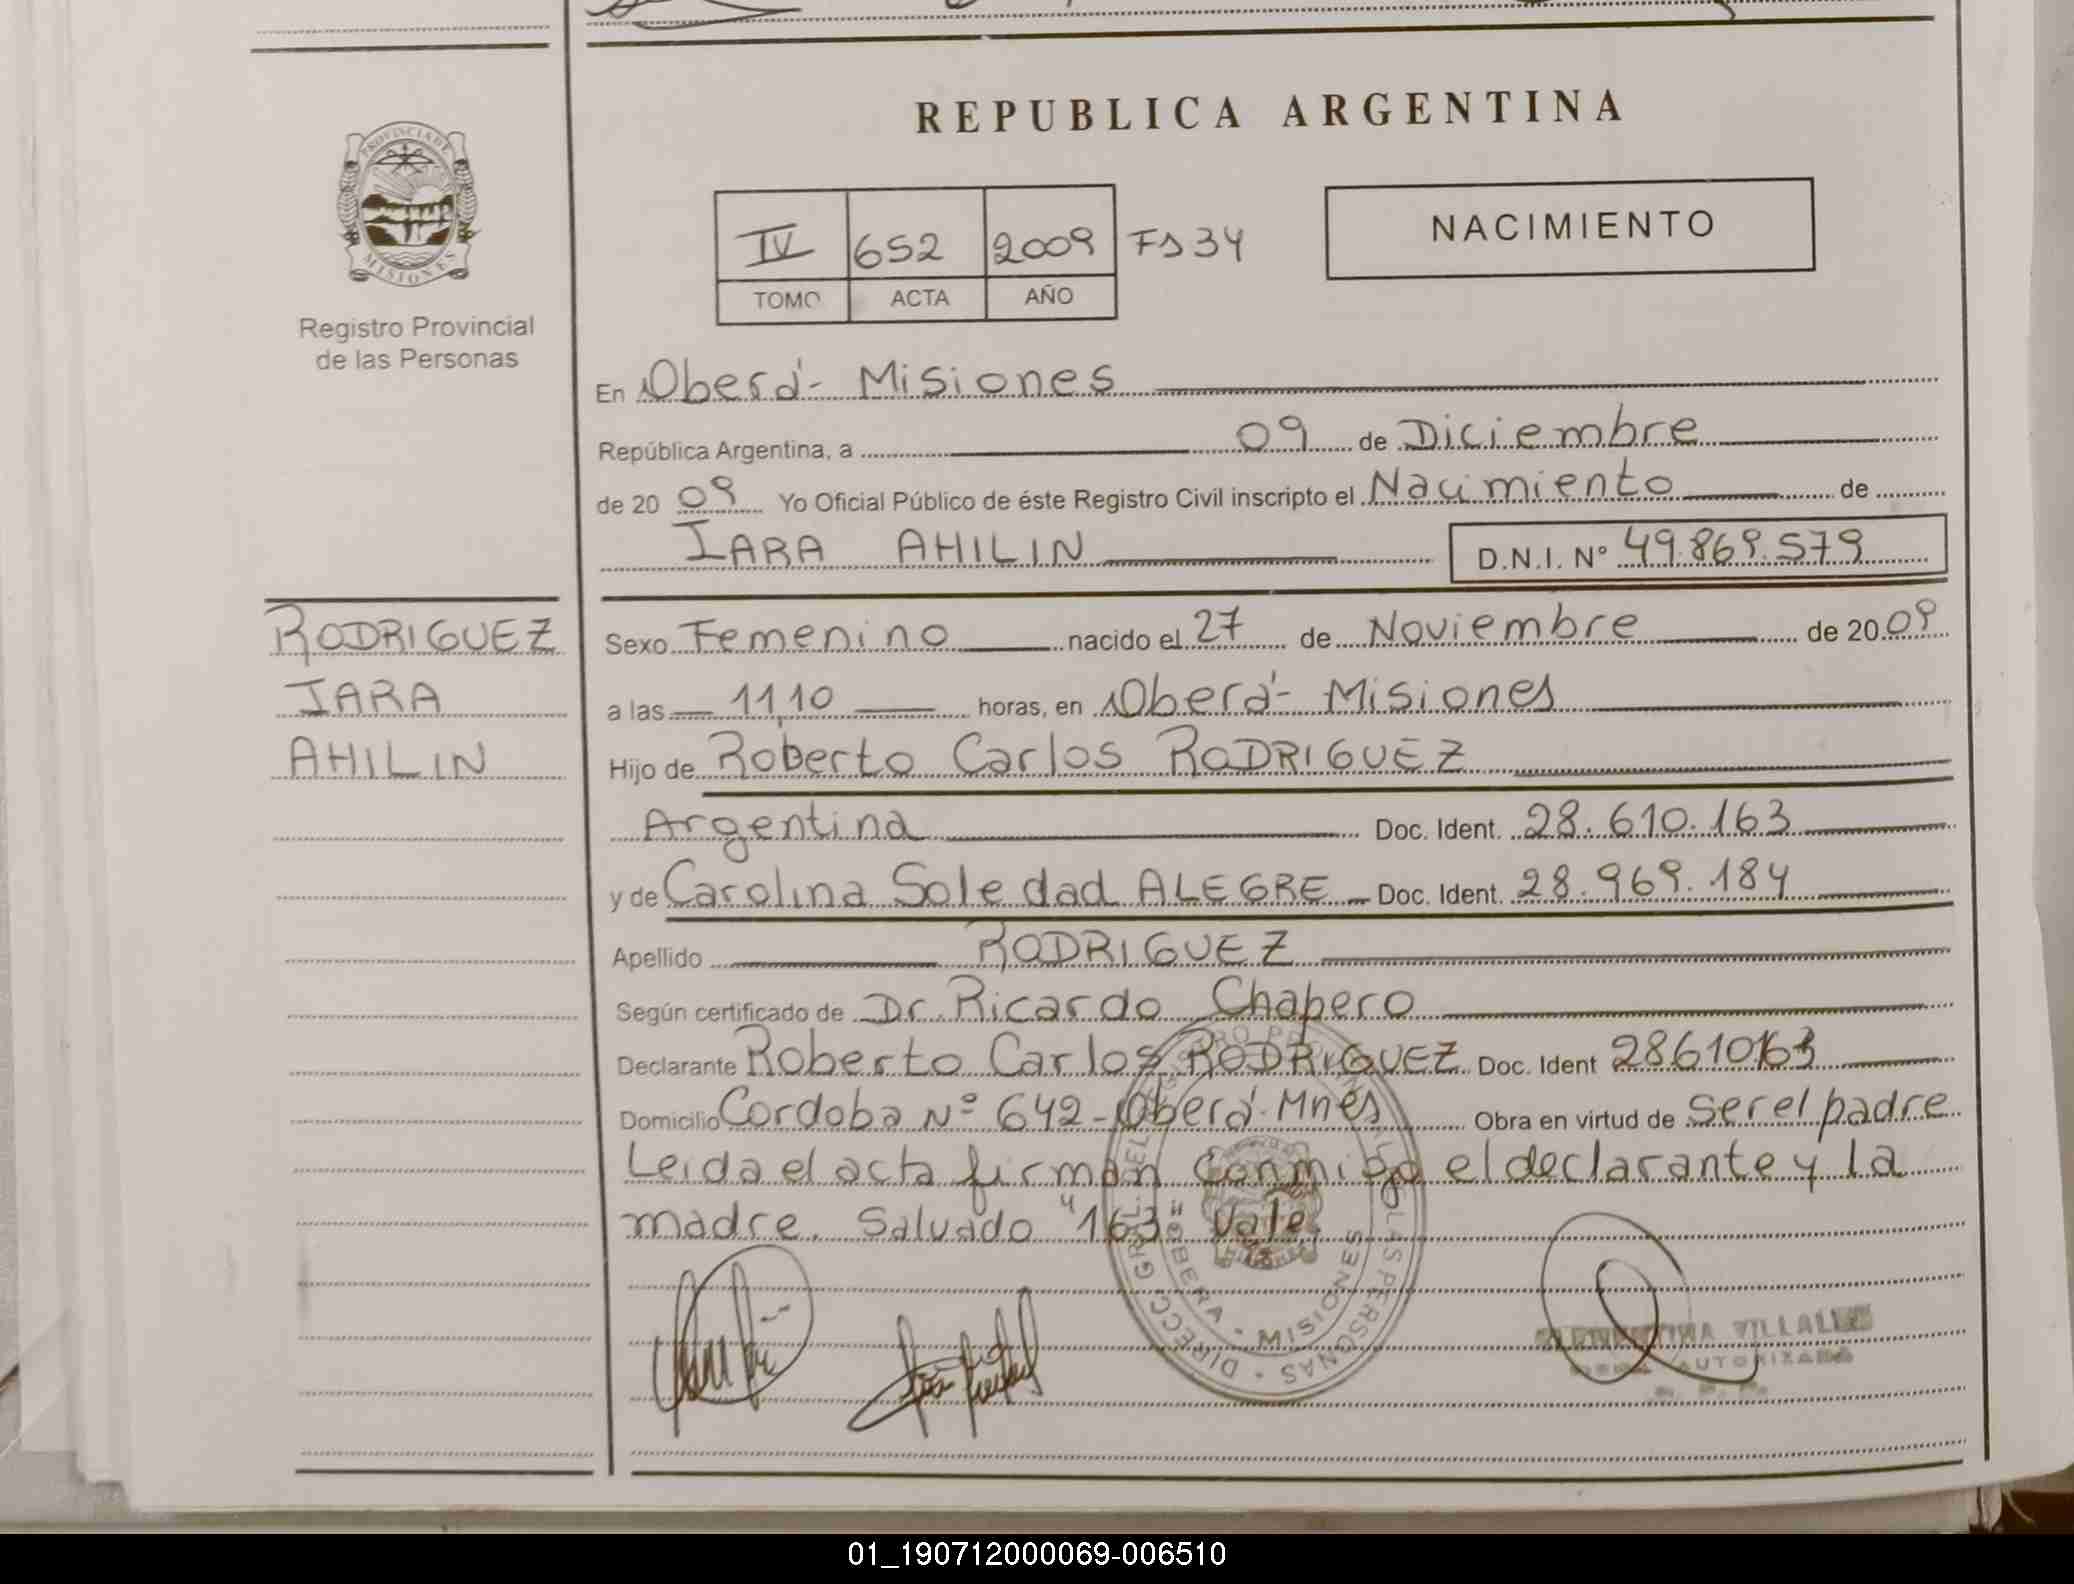 REPUBLICA ARGENTINA
PROVINCIA DE
MISIONES
Registro Provincial
de las Personas
IV 652 2009 Fs 34
TOMO ACTA AÑO
NACIMIENTO
En Oberá - Misiones
República Argentina, a 09 de Diciembre
de 20 09 Yo Oficial Público de éste Registro Civil inscripto el Nacimiento de
IARA AHILIN D.N.I. Nº 49.869.579
RODRIGUEZ
IARA
AHILIN
Sexo Femenino nacido el 27 de Noviembre de 20 09
a las 11,10 horas, en Oberá - Misiones
Hijo de Roberto Carlos RODRIGUEZ
Argentina Doc. Ident. 28.610.163
y de Carolina Soledad ALEGRE Doc. Ident. 28.969.184
Apellido RODRIGUEZ
Según certificado de Dr. Ricardo Chapero
Declarante Roberto Carlos RODRIGUEZ Doc. Ident 28610163
Domicilio Cordoba Nº 642 - Oberá - Mnes Obra en virtud de ser el padre
Leida el acta firman conmigo el declarante y la
madre. Salvado "163" Vale.
DIRECC. GRAL. DEL REGISTRO PROVINCIAL DE LAS PERSONAS
OBERA - MISIONES
VILLALBA
AUTORIZADA
01_190712000069-006510